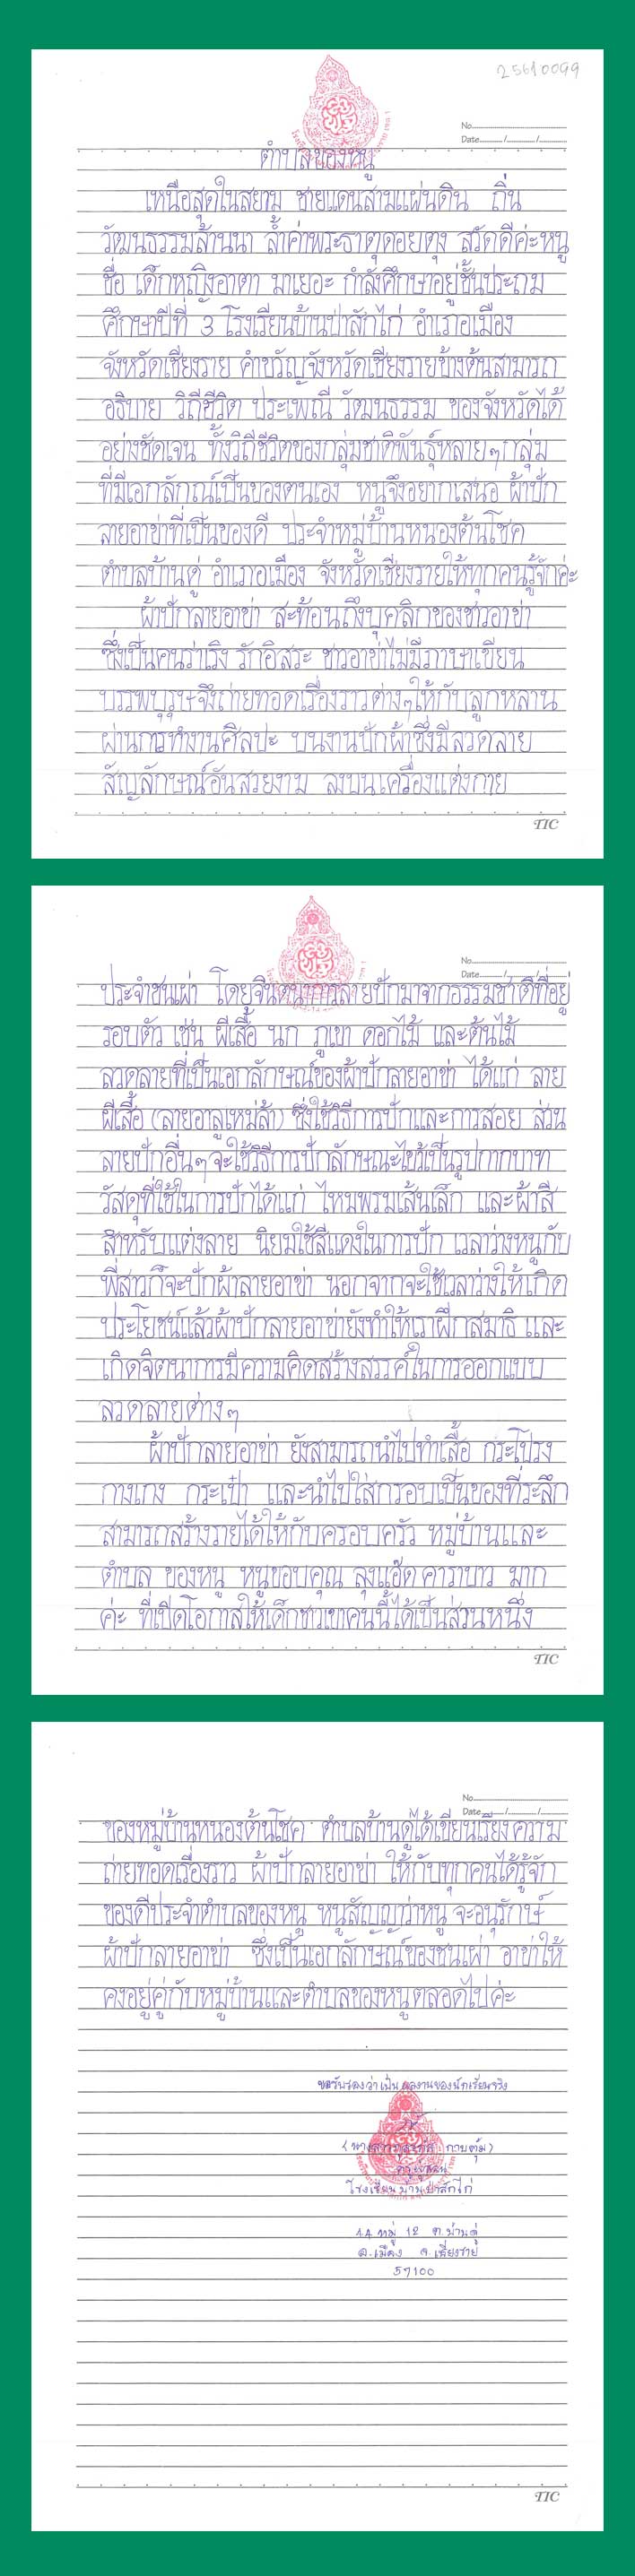 25610099
No.
Date / /
ตำบลของหนู
เหนือสุดในสยาม ชายแดนสามแผ่นดิน ถิ่น
วัฒนธรรมล้านนา ล้ำค่าพระธาตุดอยตุง สวัดดีค่ะหนู
ชื่อ เด็กหญิงอาตา มาเยอะ กำลังศึกษาอยู่ชั้นประถม
ศึกษาปีที่ 3 โรงเรียนบ้านป่าสักไก่ อำเภอเมือง
จังหวัดเชียงราย คำขวัญจังหวัดเชียงรายข้างต้นสามารถ
อธิบาย วิถีชีวิต ประเพณี วัฒนธรรม ของจังหวัดได้
อย่างชัดเจน ทั้งวิถีชีวิตของกลุ่มชาติพันธุ์หลายๆกลุ่ม
ที่มีเอกลักณ์เป็นของตนเอง หนูจึงอยากเสนอ ผ้าปัก
ลายอาข่าที่เป็นของดี ประจำหมู่บ้านหนองต้นโชค
ตำบลบ้านดู่ อำเภอเมือง จังหวัดเชียงรายให้ทุกคนรู้จักค่ะ
ผ้าปักลายอาข่า สะท้อนถึงบุคลิกของชาวอาข่า
ซึ่งเป็นคนร่าเริง รักอิสระ ชาวอาข่าไม่มีภาษาเขียน
บรรพบุรุษจึงถ่ายทอดเรื่องราวต่างๆให้กับลูกหลาน
ผ่านการทำงานศิลปะ บนงานปักผ้าซึ่งมีลวดลาย
สัญลักษณ์อันสวยงาม ลงบนเครื่องแต่งกาย
TIC
No.
Date / /
ประจำชนเผ่า โดยจินตนาการลายปักมาจากธรรมชาติที่อยู่
รอบตัว เช่น ผีเสื้อ นก ภูเขา ดอกไม้ และต้นไม้
ลวดลายที่เป็นเอกลักษณ์ของผ้าปักลายอาข่า ได้แก่ ลาย
ผีเสื้อ (ลายอาลูเหม่ล้า) ซึ่งใช้วิธีการปักและการสอย ส่วน
ลายปักอื่นๆจะใช้วิธีการปักลักษณะไขว้เป็นรูปกากบาท
วัสดุที่ใช้ในการปักได้แก่ ไหมพรมเส้นเล็ก และผ้าสี
สำหรับแต่งลาย นิยมใช้สีแดงในการปัก เวลาว่างหนูกับ
พี่สาวก็จะปักผ้าลายอาข่า นอกจากจะใช้เวลาว่างให้เกิด
ประโยชน์แล้วผ้าปักลายอาข่ายังทำให้เราฝึกสมาธิ และ
เกิดจิตนาการมีความคิดสร้างสรรค์ในการออกแบบ
ลวดลายต่างๆ
ผ้าปักลายอาข่า ยังสามารถนำไปทำเสื้อ กระโปรง
กางเกง กระเป๋า และนำไปใส่กรอบเป็นของที่ระลึก
สามารถสร้างรายได้ให้กับครอบครัว หมู่บ้านและ
ตำบล ของหนู หนูขอบคุณ ลุงแอ๊ด คาราบาว มาก
ค่ะ ที่เปิดโอกาสให้เด็กชาวเขาคนนี้ได้เป็นส่วนหนึ่ง
TIC
No.
Date / /
ของหมู่บ้านหนองต้นโชค ตำบลบ้านดู่ได้เขียนเรียงความ
ถ่ายทอดเรื่องราว ผ้าปักลายอาข่า ให้กับทุกคนได้รู้จัก
ของดีประจำตำบลของหนู หนูสัญญาว่าหนู จะอนุรักษ์
ผ้าปักลายอาข่า ซึ่งเป็นเอกลักษัณ์ของชนเผ่า อาข่าให้
คงอยู่คู่กับหมู่บ้านและตำบลของหนูตลอดไปค่ะ
ขอรับรองว่าเป็นผลงานของนักเรียนจริง
กาบตุ้ม)
ครูผู้สอน
โรงเรียนบ้านป่าสักไก่
14 หมู่ 12 ต.บ้านดู่
อ.เมือง จ.เชียงราย
57100
TIC